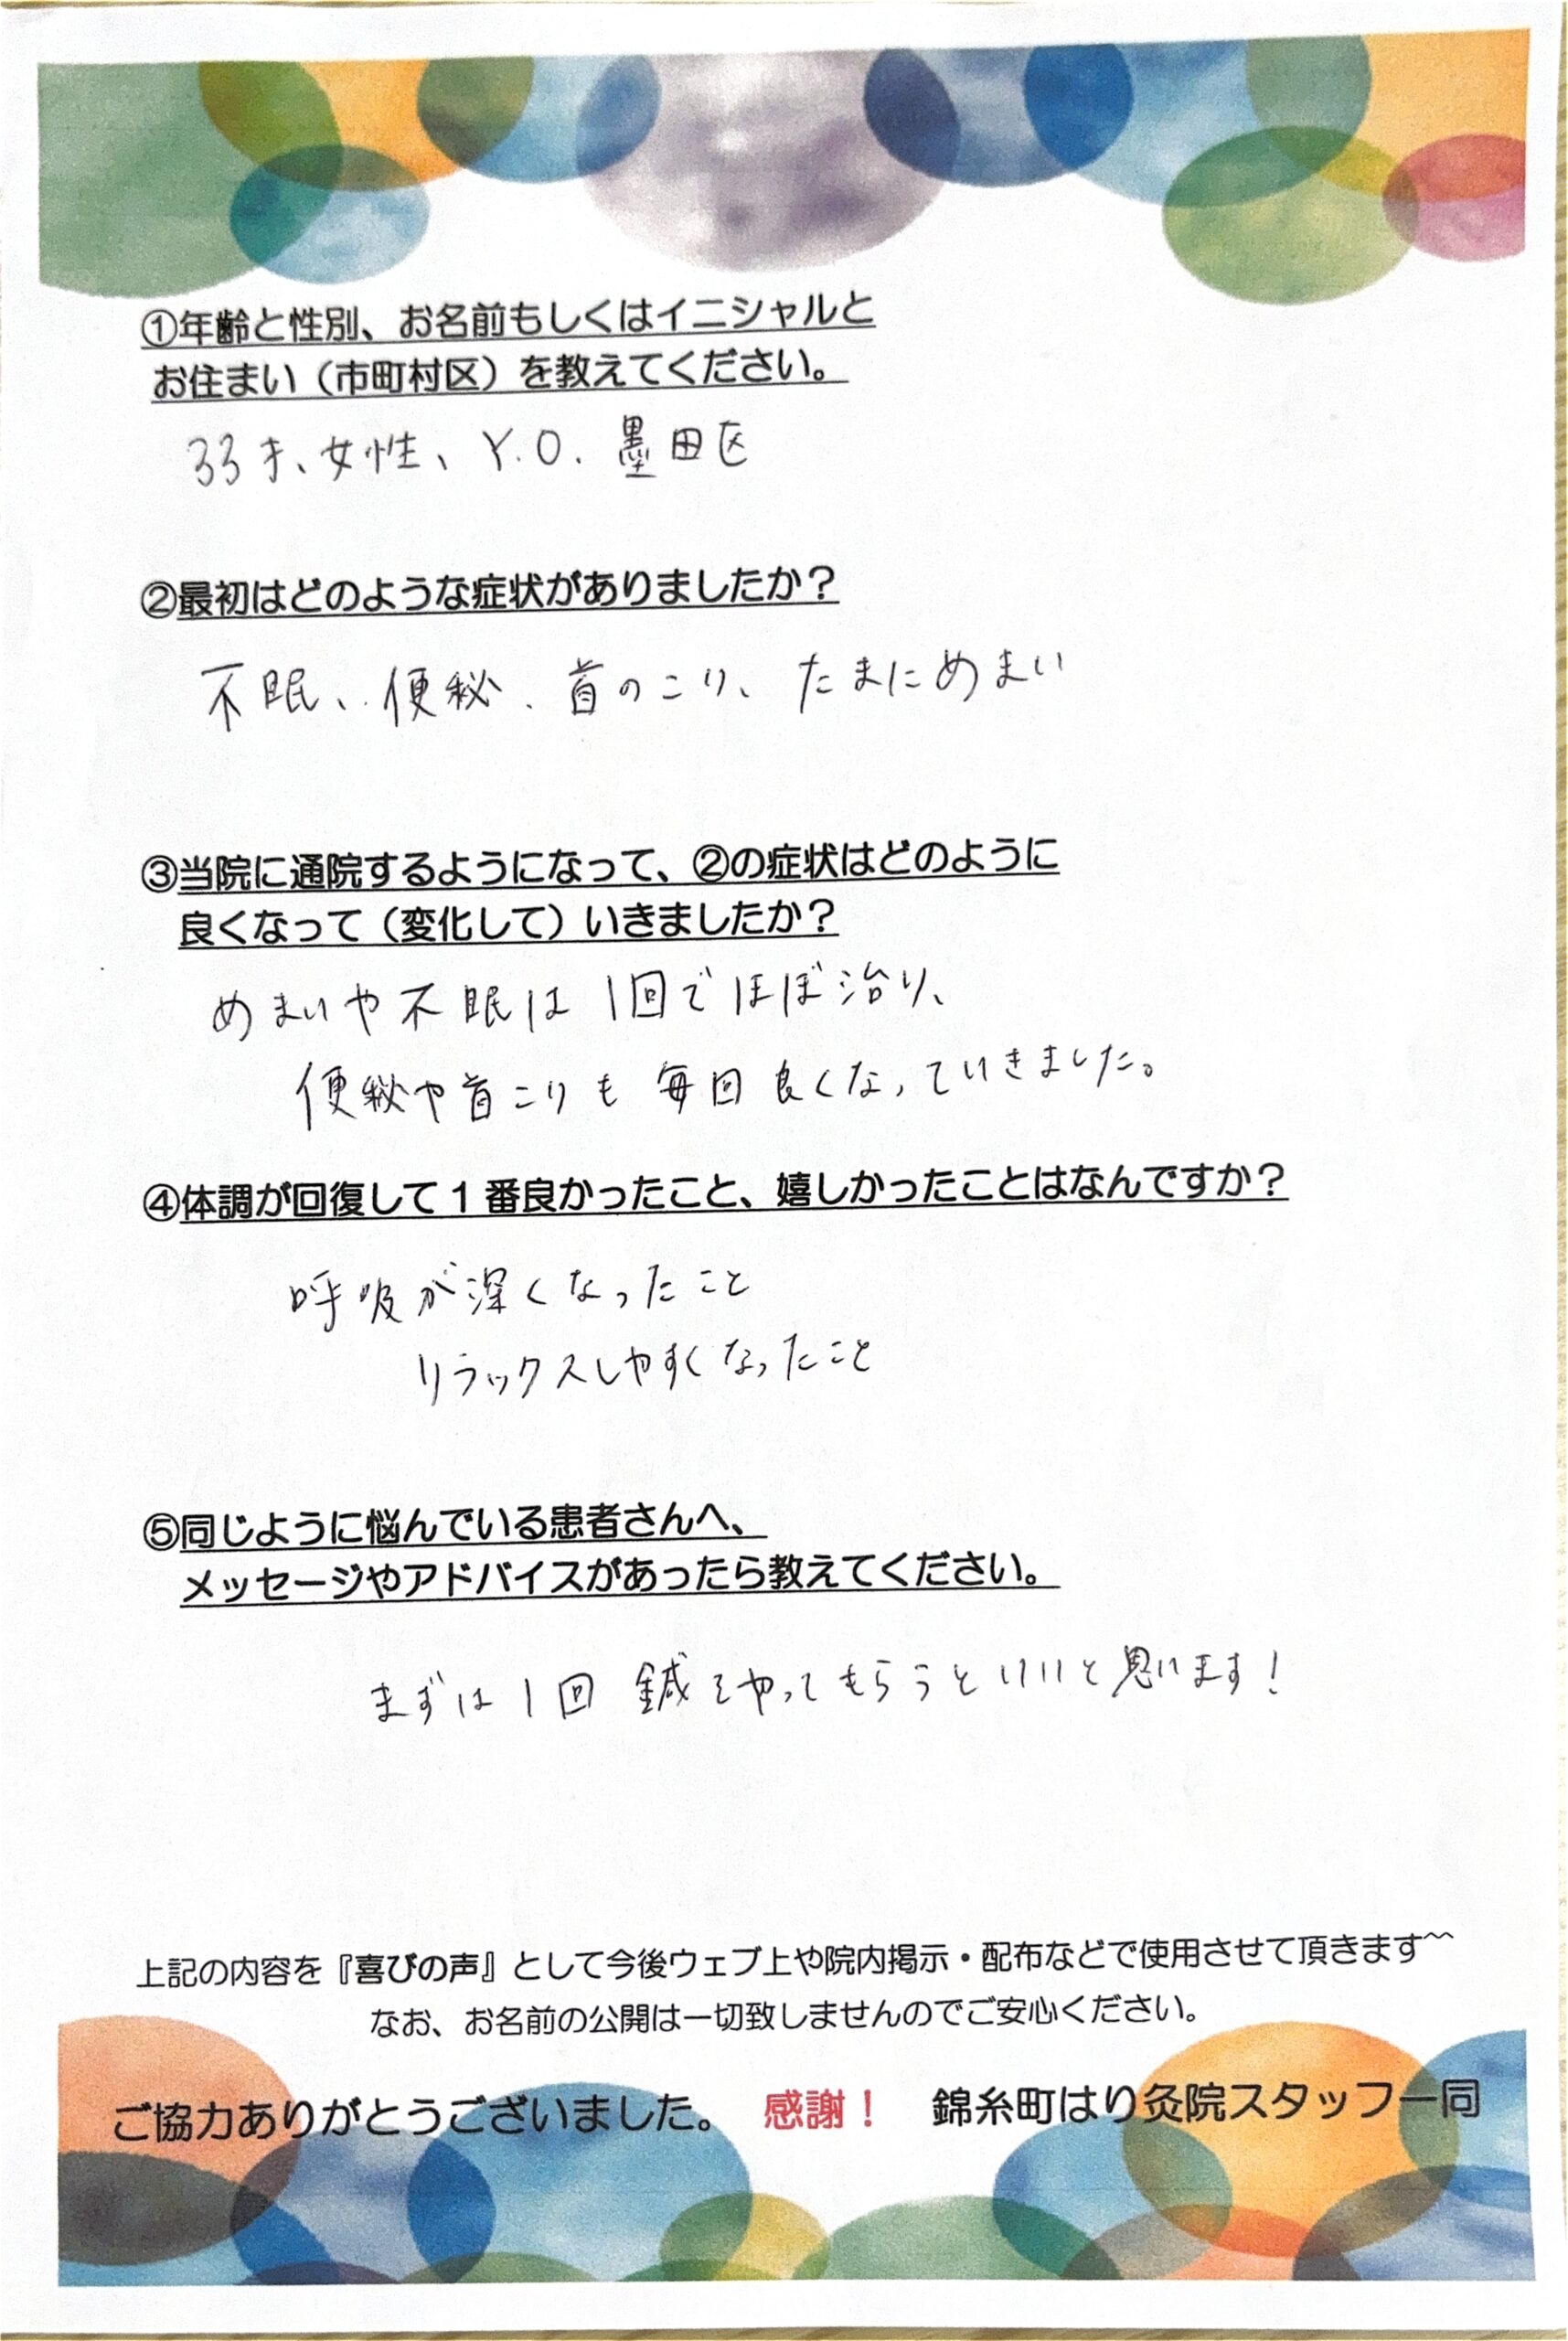 ①年齢と性別、お名前もしくはイニシャルと
お住まい（市町村区）を教えてください。
33才、女性、Y.O. 墨田区
②最初はどのような症状がありましたか？
不眠、便秘、首のこり、たまにめまい
③当院に通院するようになって、②の症状はどのように
良くなって（変化して）いきましたか？
めまいや不眠は1回でほぼ治り、
便秘や首こりも毎回良くなっていきました。
④体調が回復して1番良かったこと、嬉しかったことはなんですか？
呼吸が深くなったこと
リラックスしやすくなったこと
⑤同じように悩んでいる患者さんへ、
メッセージやアドバイスがあったら教えてください。
まずは1回鍼をやってもらうといいと思います！
上記の内容を『喜びの声』として今後ウェブ上や院内掲示・配布などで使用させて頂きます^^
なお、お名前の公開は一切致しませんのでご安心ください。
ご協力ありがとうございました。 感謝！ 錦糸町はり灸院スタッフ一同